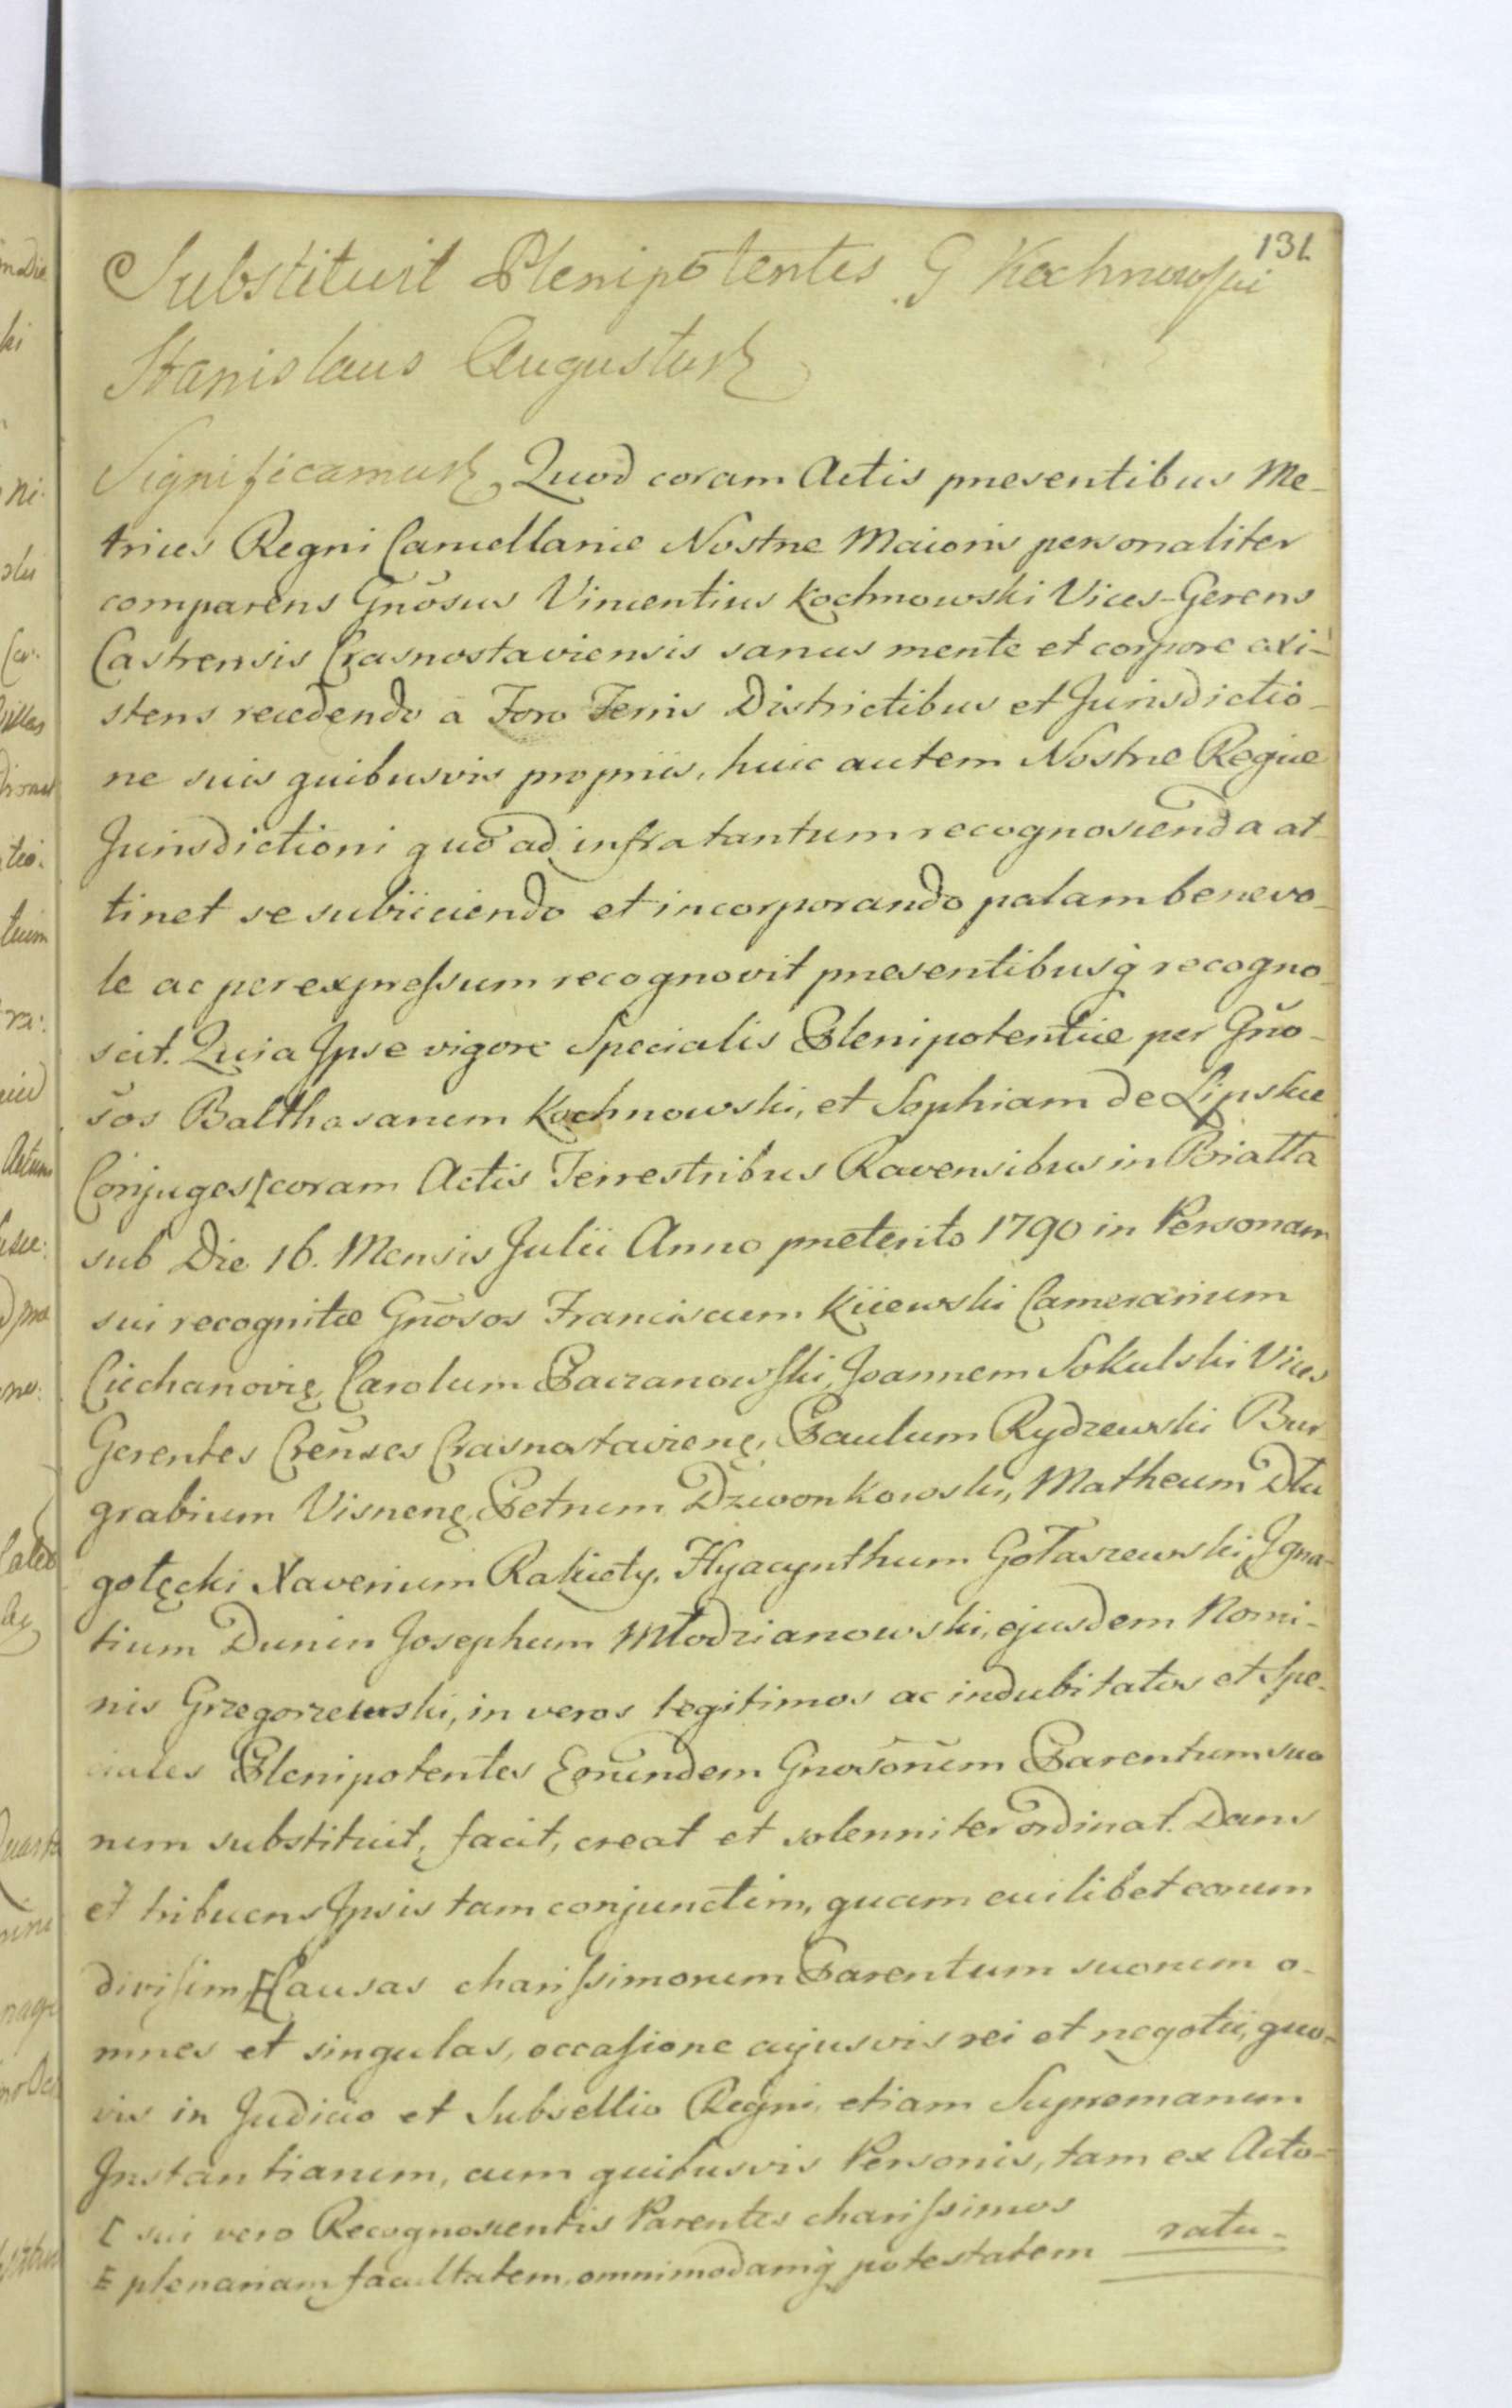 131
Substituit Plenipotentes G Kochnowski
Stanislaus Augustus
Significamus, Quod coram Actis præsentibus Me-
trices Regni Cancellariæ Nostræ Maioris personaliter
comparens Gnōsus Vincentius Kochnowski Vices-Gerens
Castrensis Crasnostaviensis sanus mente et corpore exi-
stens recedendo a Foro Terris Districtibus et Jurisdictio-
ne suis quibusvis propriis, huic autem Nostræ Regiæ
Jurisdictioni quō ad infra tantum recognoscenda at-
tinet se subiiciendo et incorporando palam benevo-
le ac per expressum recognovit præsentibusq́ recogno-
scit. Quia Ipse vigore Specialis Plenipotentiæ per Gño-
s̃os Balthasarem Kochnowski, et Sophiam de Lipskie
Conjuges [coram Actis Terrestribus Ravensibus in Biatta
sub Die 16. Mensis Julii Anno præterito 1790 in Personam
sui recognitæ Gnōsos Franciscum Kiiewski Camerarium
Ciechanovię Carolum Paczanowski, Joannem Sokulski Vices
Gerentes Creñses Crasnostavienę, Paulum Rydzewski Bur-
grabium Visnenę Petrum Dzwonkowski, Matheum Dłu
gołęcki Xaverium Rakiety, Hyacynthum Gołaszewski, Igna-
tium Dunin Josephum Młodzianowski, ejusdem Nomi-
nis Grzegorzewski, in veros legitimos ac indubitatos et Spe-
ciales Plenipotentes Eorūndem Gnosōrum Parentum suo
rum substituit, facit, creat et solenniter ordinat. Dans
et tribuens Ipsis tam conjunctim, quam cuilibet eorum
divisim, E Causas charissimorum Parentum suorum o-
mnes et singulas, occasione cujusvis rei et negotii, quo-
vis in Judicio et Subsellio Regni, etiam Supremarum
Instantiarum, cum quibusvis Personis, tam ex Acto-
[ sui vero Recognoscentis Parentes charissimos
E plenariam facultatem, omnimodamq́ potestatem
ratu-